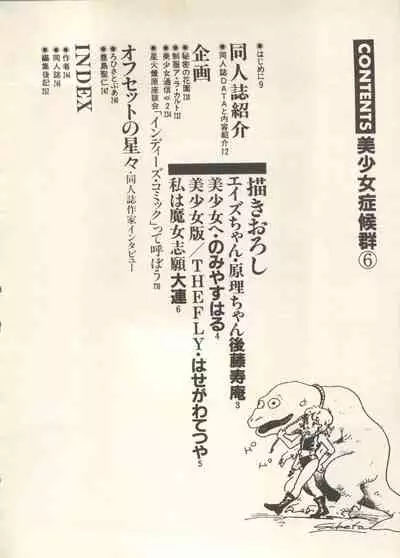 CONTENTS 美少女症候群⑥
●はじめに 9
同人誌紹介
●同人誌DATAと内容紹介 12
企画
●秘密の花園
●制服ア・ラ・カルト
●美少女通信
●星火燎原座談会「インディーズ・コミック」って呼ぼう
オフセットの星々・同人誌作家インタビュー
●ろひさとぷあ
●鹿島聖仁
INDEX
●作者
●同人誌
●編集後記
描きおろし
エイズちゃん・原理ちゃん 後藤寿庵 3
美少女へ・のみやすはる 4
美少女版/THEFLY・はせがわてつや 5
私は魔女志願 大連 6